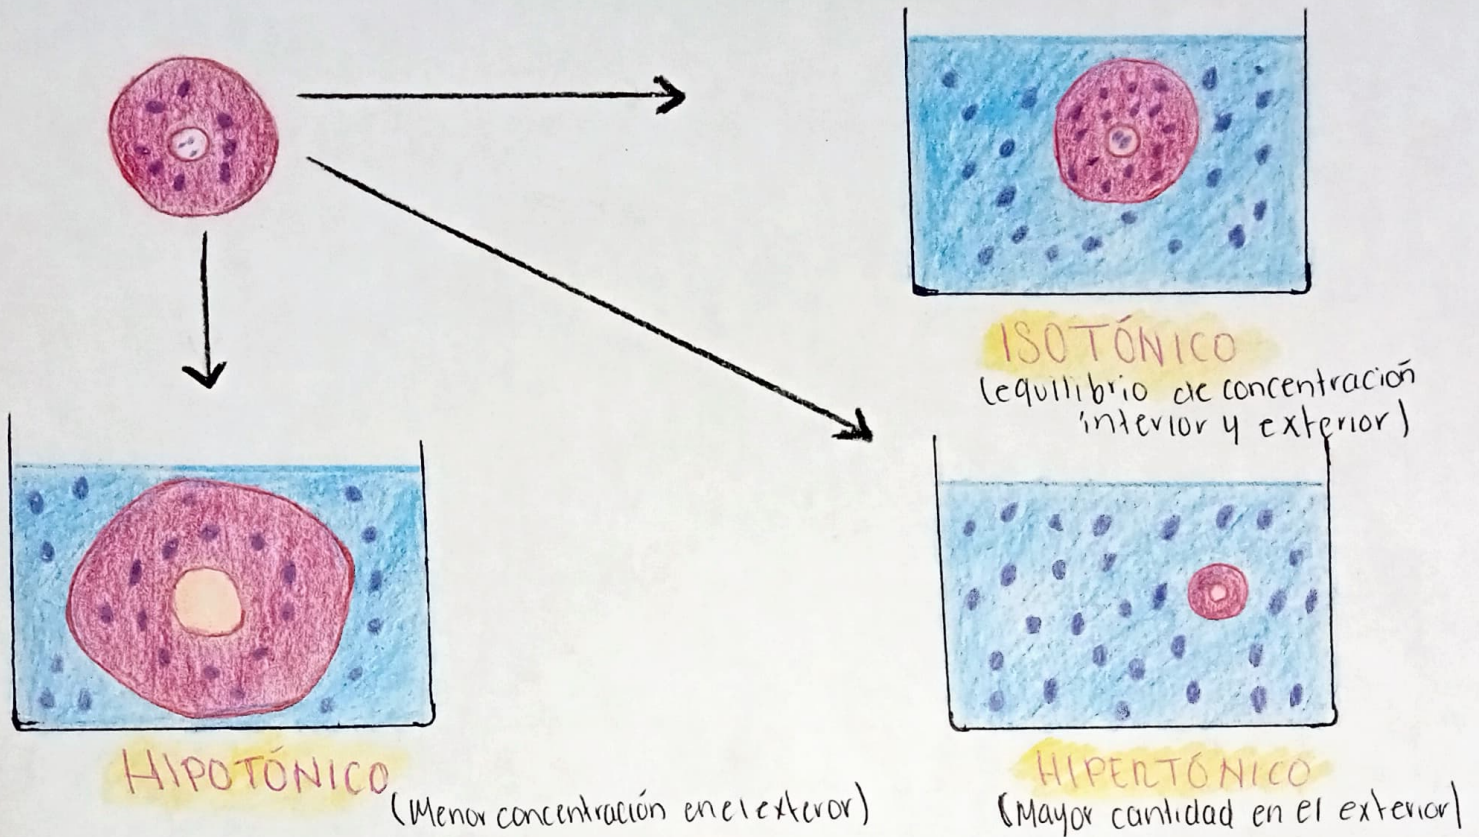 ISOTÓNICO
(equilibrio de concentración
interior y exterior)
HIPOTÓNICO
(Menor concentración en el exteror)
HIPERTÓNICO
(Mayor cantidad en el exterior)